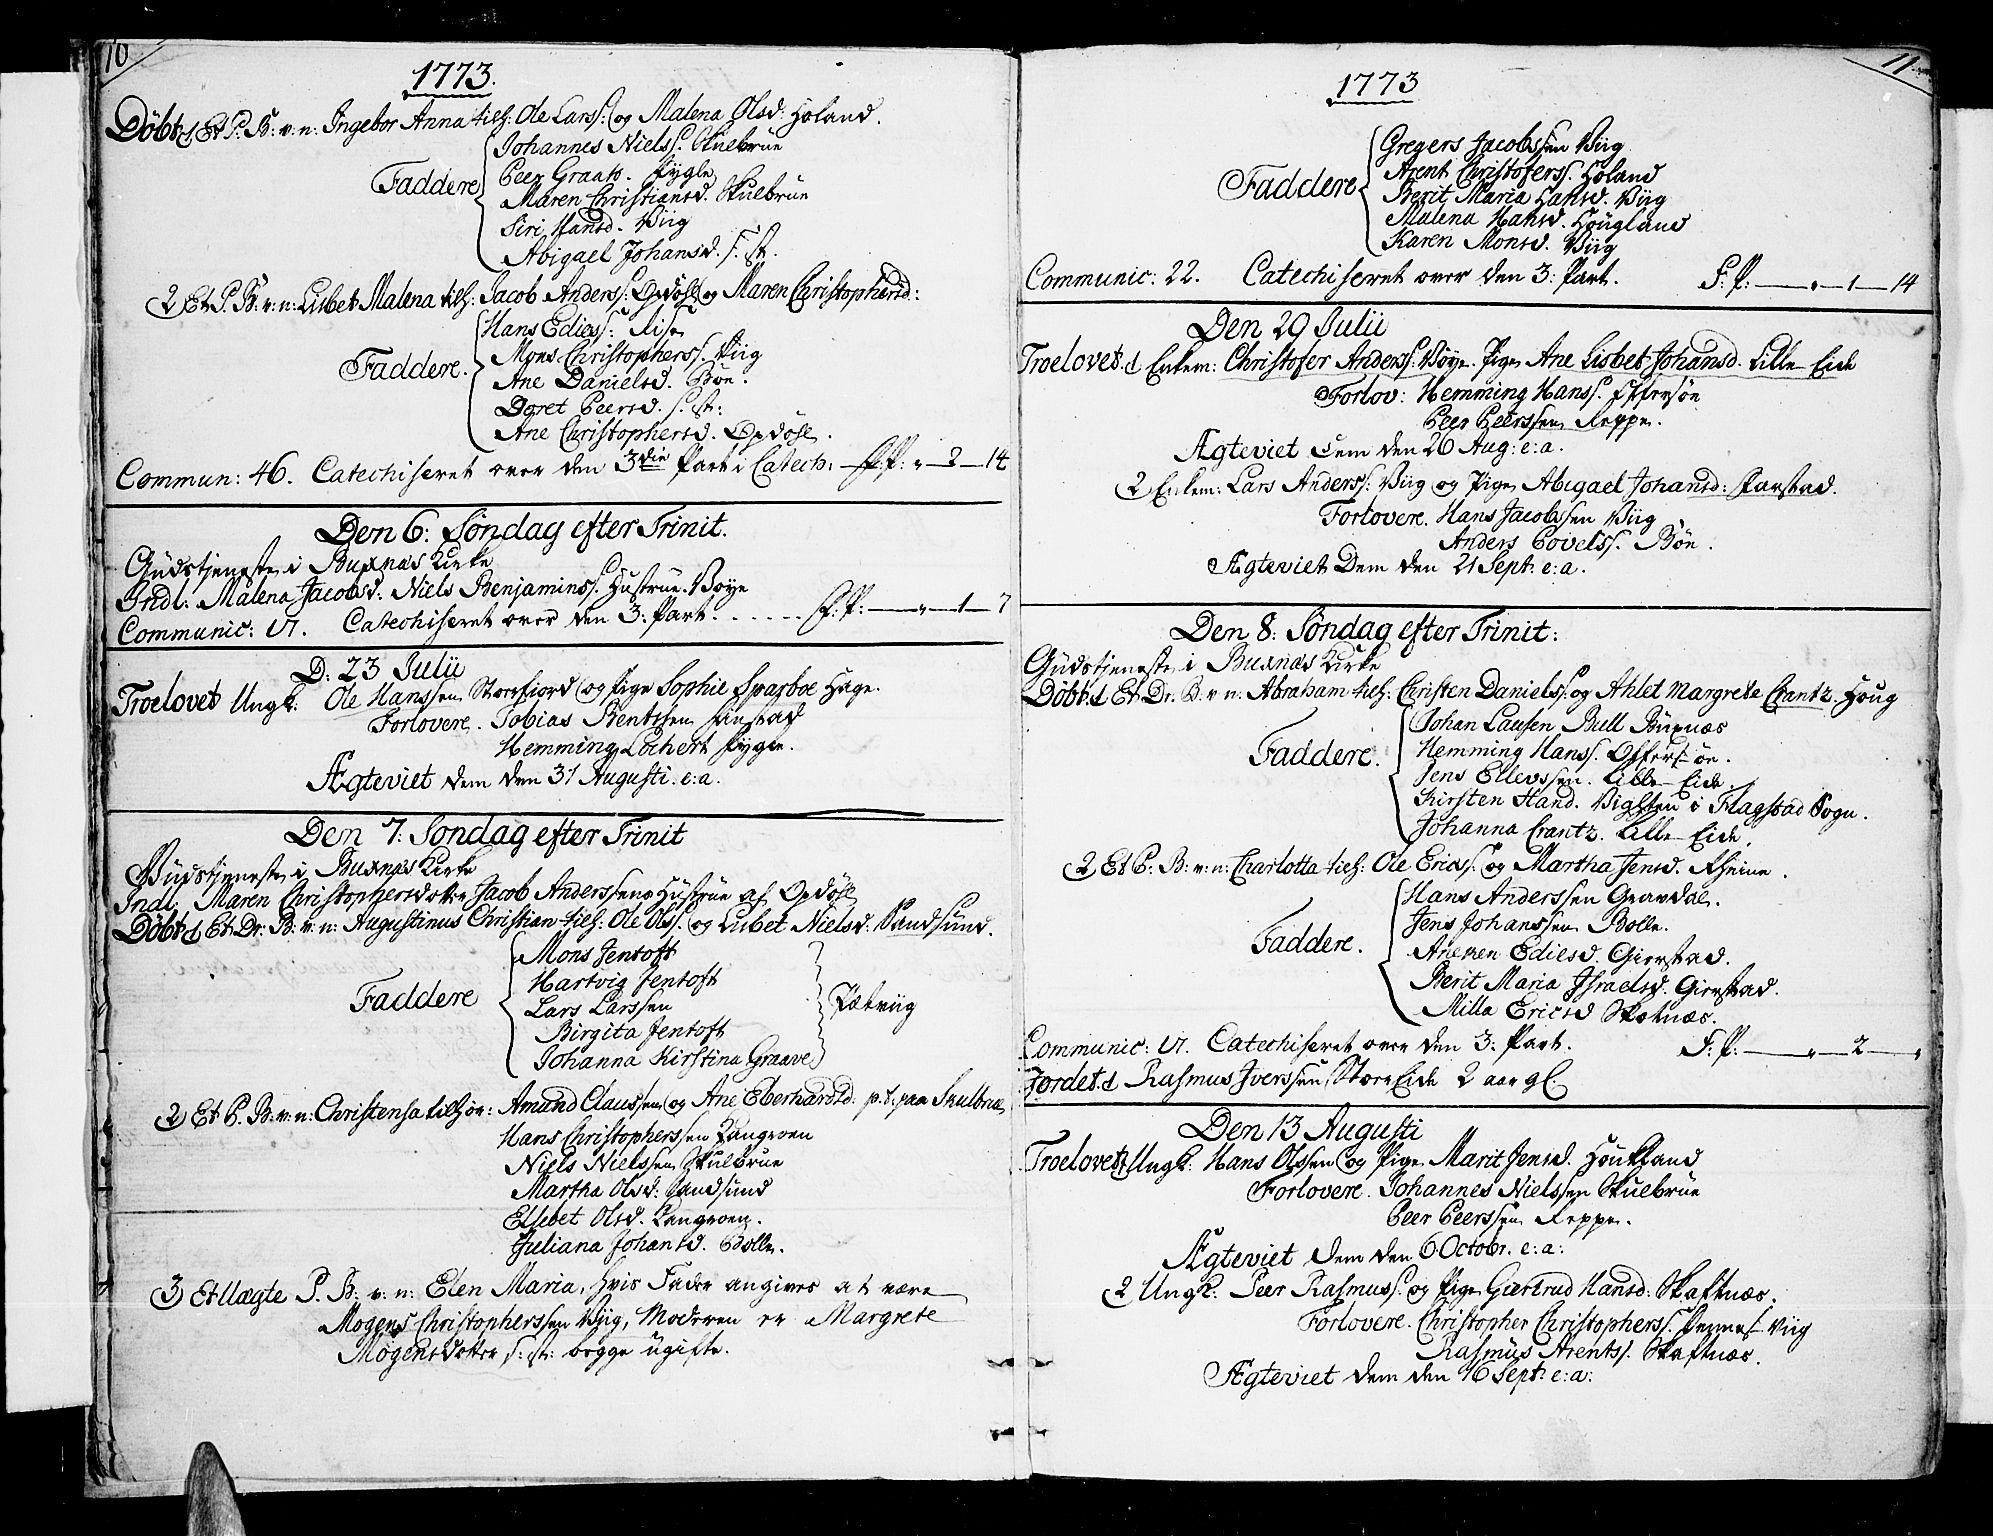 10
1773.
Döbt 1 Et P. B: v: n: Ingebor Anna tilh: Ole Larss: og Malena Olsd: Holand.
Johannes Nielss. Skulbrue
Faddere Peer Graatz. Pygle
Maren Christiansd. Skulbrue
Siri Hansd. Viig
Abigael Johansd. s. st.
2 Et P. B: v: n: Lisbet Malena tilh: Jacob Anderss: Opdöhl og Maren Christophersd:
Hans Ediess: Rise
Mons Christopherss. Viig
Faddere. Ane Danielsd. Böe.
Doret Peersd. s. st:
Ane Christophersd. Opdöhl.
Commun: 46. Catechiseret over den 3die Part i Catech: F:P: „ 2 14
Den 6: Söndag efter Trinit.
Gudstjeneste i Buxnæs Kirke
Indl: Malena Jacobsd: Niels Benjaminss. Hustrue Boye
Communic: 17. Catechiseret over den 3: Part. . . . . . F: P: „ 1 7
D: 23 Julii
Troelovet Ungk: Ole Hanssen Storfiord og Pige Sophie Sparboe Hage.
Forlovere. Tobias Bentssen Finstad
Hemming Lochert Pygle.
Ægteviet dem den 31 Augusti. e: a.
Den 7: Söndag efter Trinit
Gudstjeneste i Buxnæs Kirke
Indl. Maren Christophersdotter Jacob Anderssens Hustrue af Opdöhl
Döbt 1 Et Dr: B: v: n: Augustinus Christian tilh: Ole Olss. og Lisbet Nielsd: Sandsund.
Mons Jentoft
Hartvig Jentoft
Faddere Lars Larssen Petviig
Birgita Jentoft
Johanna Kirstina Graave
2 Et P. B: v: n: Christensa tilhör: Amund Claussen og Ane Eberhardsd: p. t. paa Skulbrue
Hans Christopherssen Langroen
Niels Nielssen Skulbrue
Martha Olsd: Sandsund
Elsebet Olsd. Langroen.
Juliana Johansd. Bolle.
3 Et Uægte P. B: v: n: Elen Maria, hvis Fader angives at være
Mogens Christopherssen Viig, Moderen er Margrete
Mogensdotter s: st: begge ugifte.
11.
1773
Gregers Jacobssen Viig
Arent Christoferss. Holand
Faddere Berit Maria Hansd. Viig
Malena Hansd. Hougland
Karen Monsd. Viig
Communic: 22. Catechiseret over den 3: Part. F: P: „ 1 14
Den 29 Julii
Troelovet. 1 Enkem: Christofer Anderss. Böye. Pige Ane Lisbet Johansd. Lille Eide
Forlov: Hemming Hanss. Offersöe
Peer Peerssen Reppe.
Ægteviet Dem den 26 Aug: e: a.
2 Enkem: Lars Anderss: Viig og Pige Abigael Johansd: Farstad.
Forlovere. Hans Jacobssen Viig
Anders Povelss. Böe.
Ægteviet Dem den 21 Sept: e: a.
Den 8: Söndag efter Trinit:
Gudstjeneste i Buxnæs Kirke
Döbt. 1 Et Dr. B. v. n: Abraham tilh: Christen Danielss. og Ahlet Margrete Crantz. Houg
Johan Lausen Bull Buxnæs
Faddere. Hemming Hanss. Offersöe.
Jens Ellevssen. Lille Eide
Kirsten Hansd. Vigsten i Flagstad Sogn.
Johanna Crantz. Lille Eide.
2 Et P. B: v: n: Charlotta tilh: Ole Ericss. og Martha Jensd. Rheine.
Hans Anderssen Gravdal.
Jens Johanssen Bolle.
Faddere. Aneken Ediesd. Gierstad.
Berit Maria Israelsd. Gierstad.
Milla Ericsd Skotnæs.
Communic: 17. Catechiseret over den 3: Part. F: P: „ 2 „
Jordet. 1 Rasmus Iverssen Store Eide 2 aar gl.
Den 13 Augusti
Troelovet 1 Ungk: Hans Olssen og Pige Marit Jensd. Houkland
Forlovere. Johannes Nielssen Skulbrue
Peer Peerssen Reppe.
Ægteviet dem den 6 Octobr. e: a:
2 Ungk: Peer Rasmuss. og Pige Giertrud Hansd: Skaftnæs.
Forlovere. Christopher Christopherss. Pennes Viig
Rasmus Arentss. Skaftnæs.
Ægteviet dem den 16 Sept: e: a: